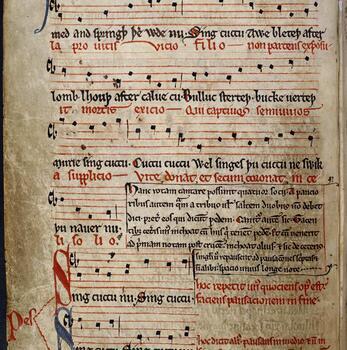 med and springþ þe wde nu. Sing cuccu Awe bleteþ after
la pro uitis vicio filio non parcens exposu
lomb lhouþ after calue cu. Bulluc sterteþ. bucke uerteþ
it mortis exicio Qui captiuos semiuiuos
murie sing cuccu. Cuccu cuccu Wel singes þu cuccu ne swik
a supplicio Vite donat et secum coronat in ce
Hanc rotam cantare possunt quatuor socij. A pau
tribus autem uel a tribus uel saltem duobus non debet
dici. preter eos qui dicunt pedem. Canitur autem sic. Tacen
þu nauer nu.
tibus ceteris unus inchoat cum hiis qui tenent pedem. et cum uenerit
li so lio.
ad primam notam post crucem. inchoat alius. et sic de ceteris
singuli uero repausent ad pausaciones scriptas
et non alibi. spacio unius longe note.
Sing cuccu nu. Sing cuccu.
hoc repetit unus quociens opus est.
faciens pausacionem in fine.
Pes
hoc dicit alius. pausans in medio et non in
Sing cuccu. Sing cuccu nu